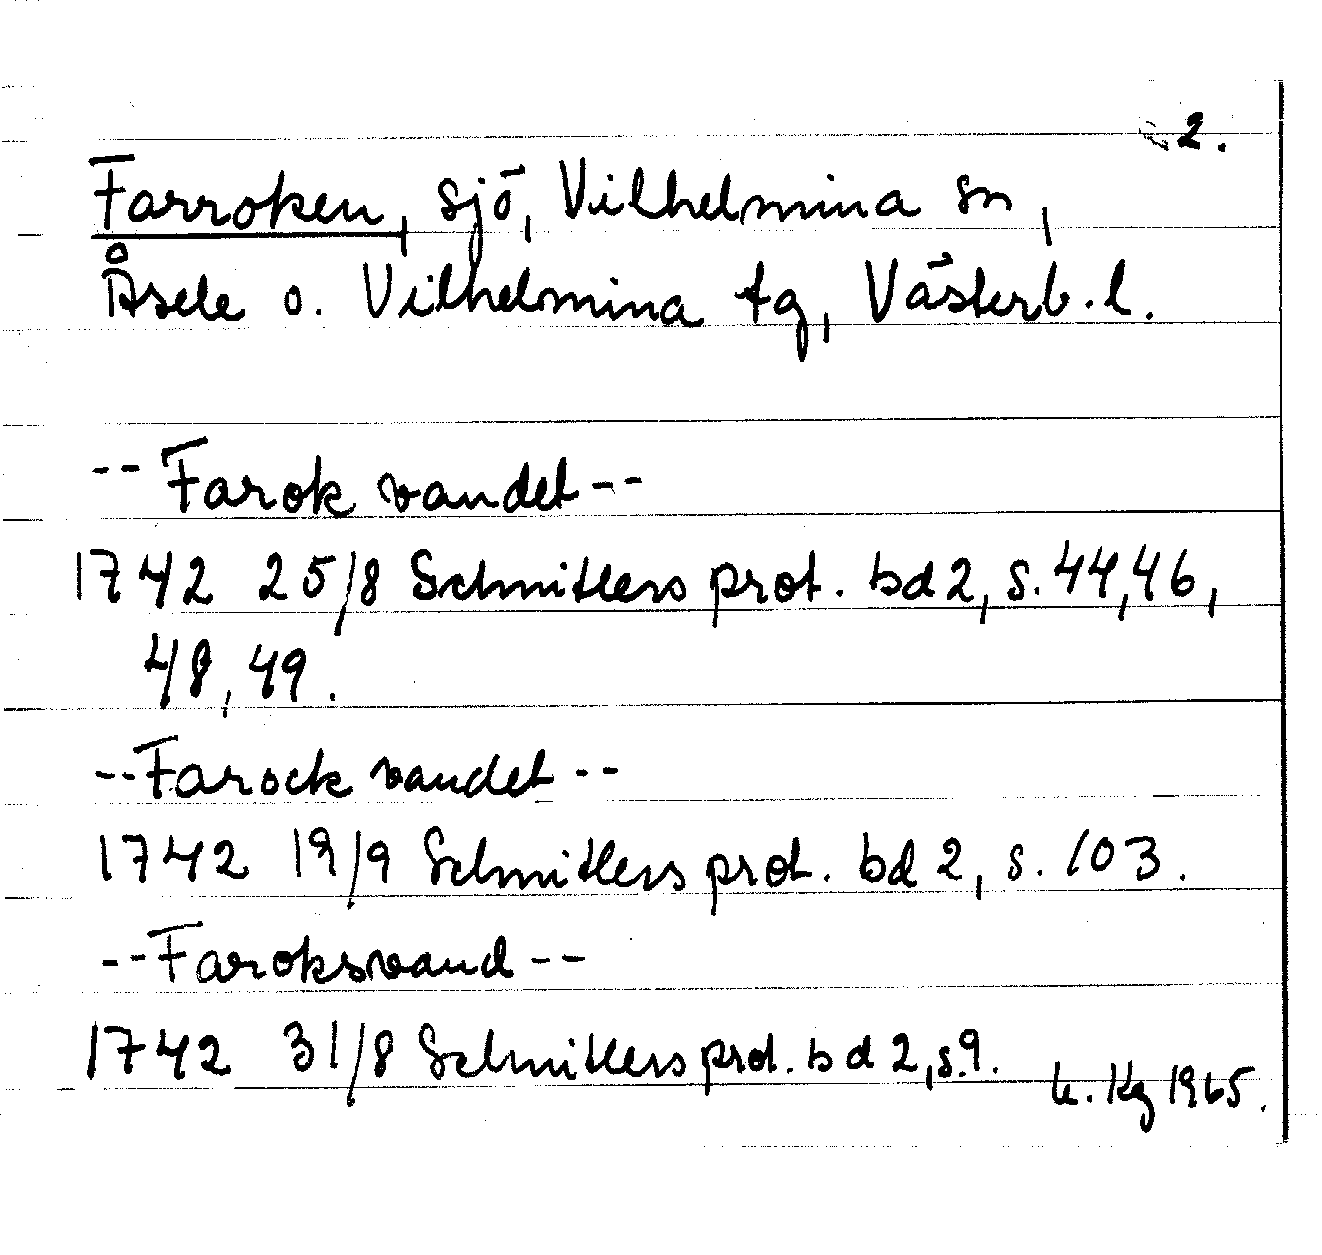 2.
Farroken, sjö, Vilhelmina sn,
Åsele o. Vilhelmina tg, Västerb. l.
-- Farok vandet --
1742 25/8 Schnitlers prot. bd 2, s. 44, 46,
48, 49.
-- Farock vandet --
1742 19/9 Schnitlers prot. bd 2, s. 103.
-- Faroksvand --
1742 31/8 Schnitlers prot. bd 2, s. 9.
Kg 1965.